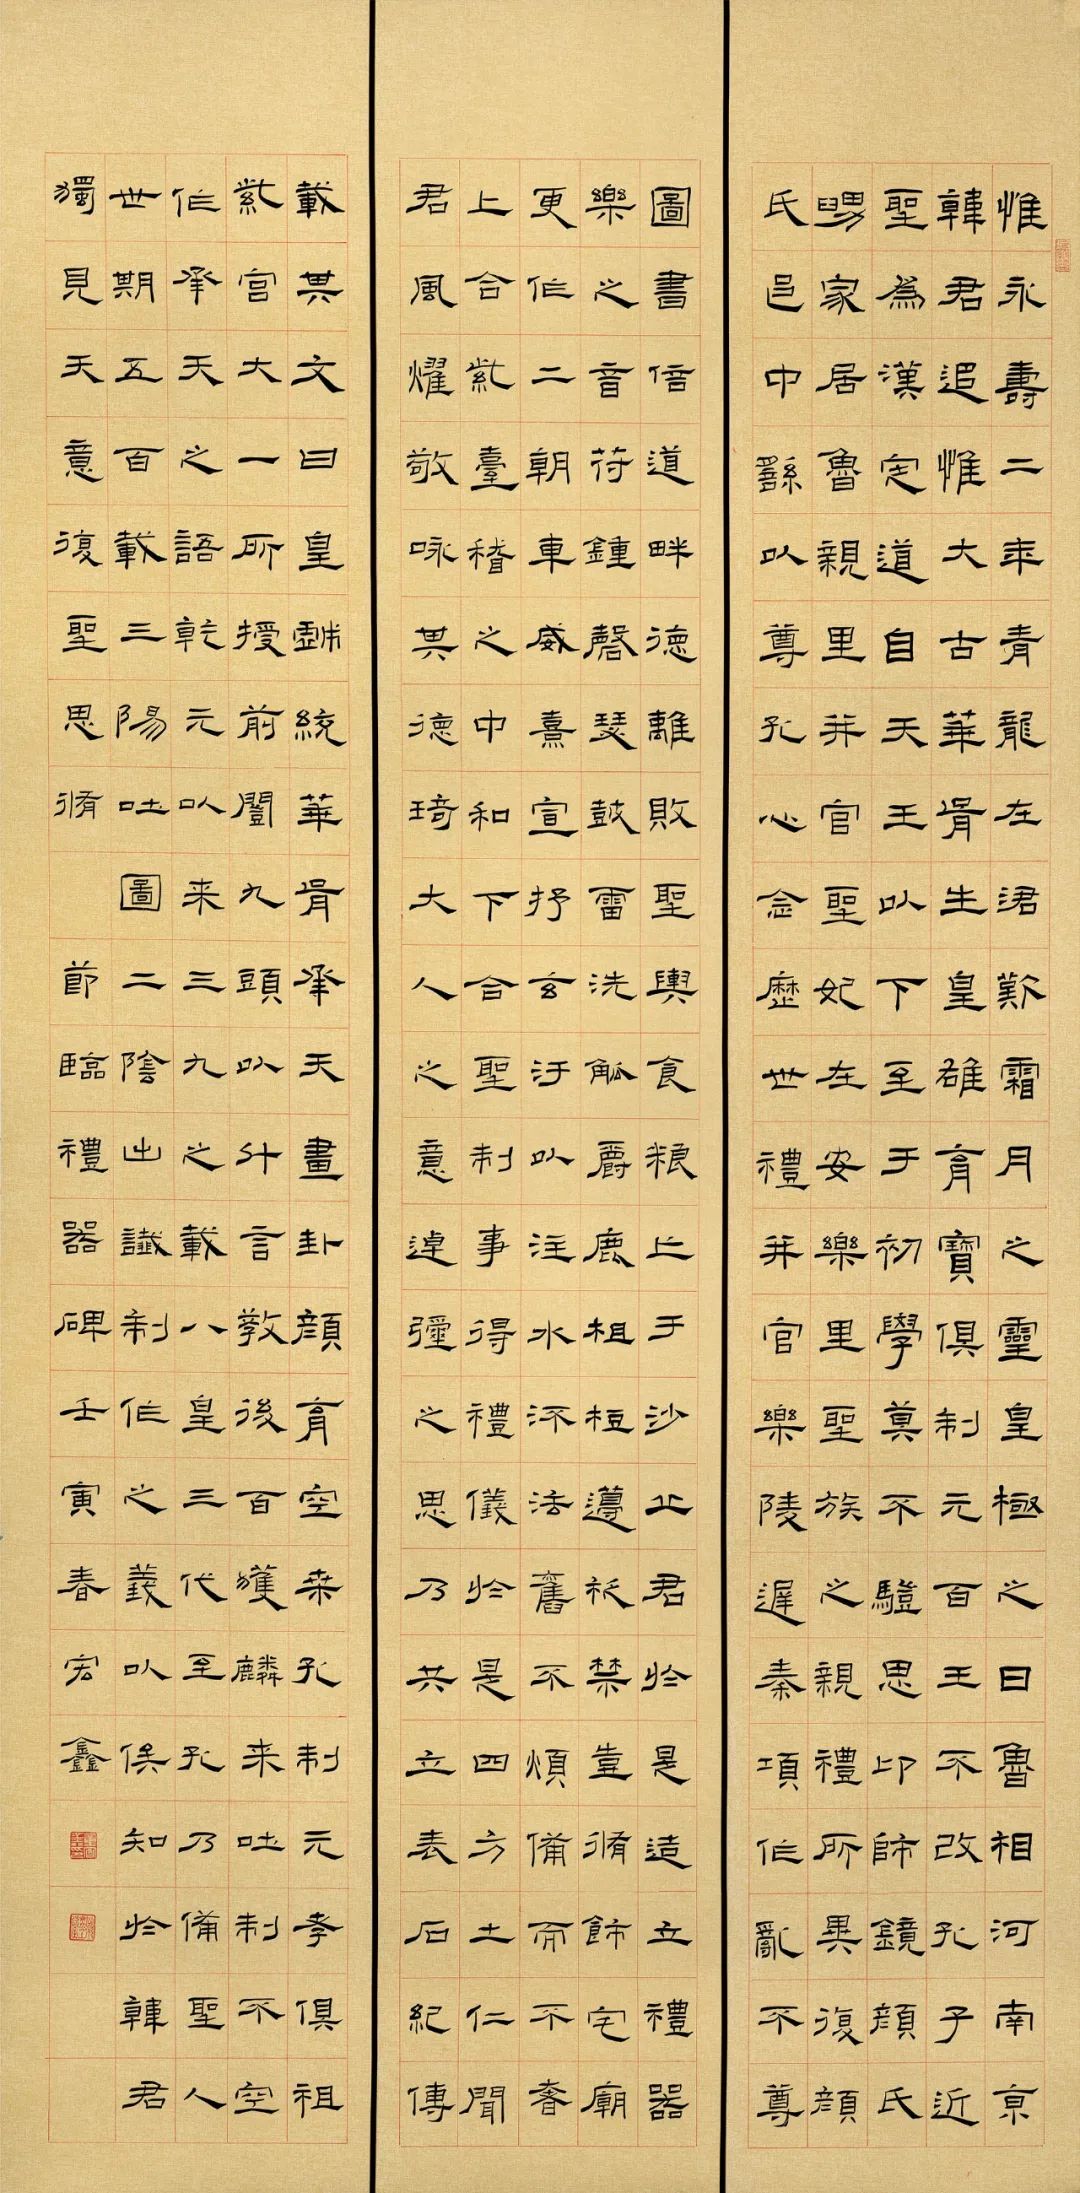 惟永壽二年青龍在涒歎霜月之靈皇極之日魯相河南京
韓君追惟大古華胥生皇雄育寶俱制元百王不改孔子近
聖為漢定道自天王以下至于初學莫不驥思印師鏡顏氏
舅家居魯親里并官聖妃在安樂里聖族之親禮所異復顏
氏邑中繇以尊孔心念歷世禮并官樂陵遲秦項作亂不尊
圖書倍道畔德離敗聖輿食粮亡于沙丘君於是造立禮器
樂之音符鍾磬瑟鼓雷洗觚爵鹿柤梪籩柉禁壺脩飾宅廟
更作二朝車威熹宣抒玄汙以注水流法舊不煩備而不奢
上合紫臺稽之中和下合聖制事得禮儀於是四方土仁聞
君風燿敬咏其德琦大人之意逴彌之思乃共立表石紀傳
載其文曰皇戲統華胥承天畫卦顏育空桑孔制元孝俱祖
紫宮大一所授前闓九頭以什言教後百獲麟來吐制不空
作承天之語乾元以來三九之載八皇三代至孔乃備聖人
世期五百載三陽吐圖二陰出讖制作之義以俟知於韓君
獨見天意復聖思脩 節臨禮器碑壬寅春宏鑫